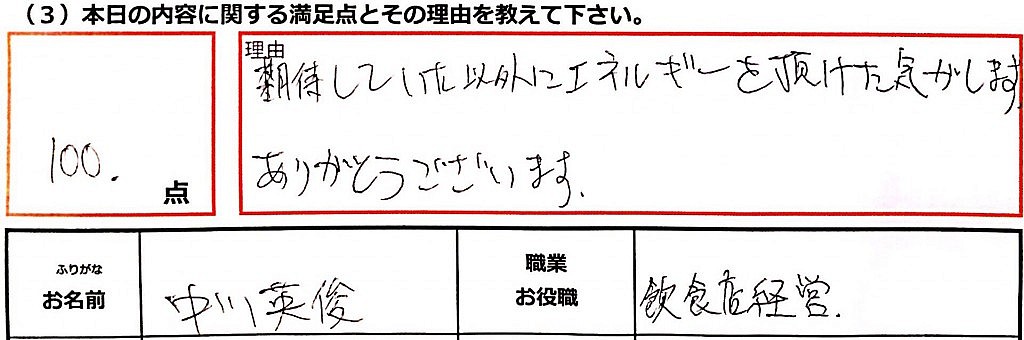 （３）本日の内容に関する満足点とその理由を教えて下さい。
理由
期待していた以外にエネルギーを頂けた気がします
100.
点
ありがとうございます.
ふりがな
お名前
中川英俊
職業
お役職
飲食店経営.